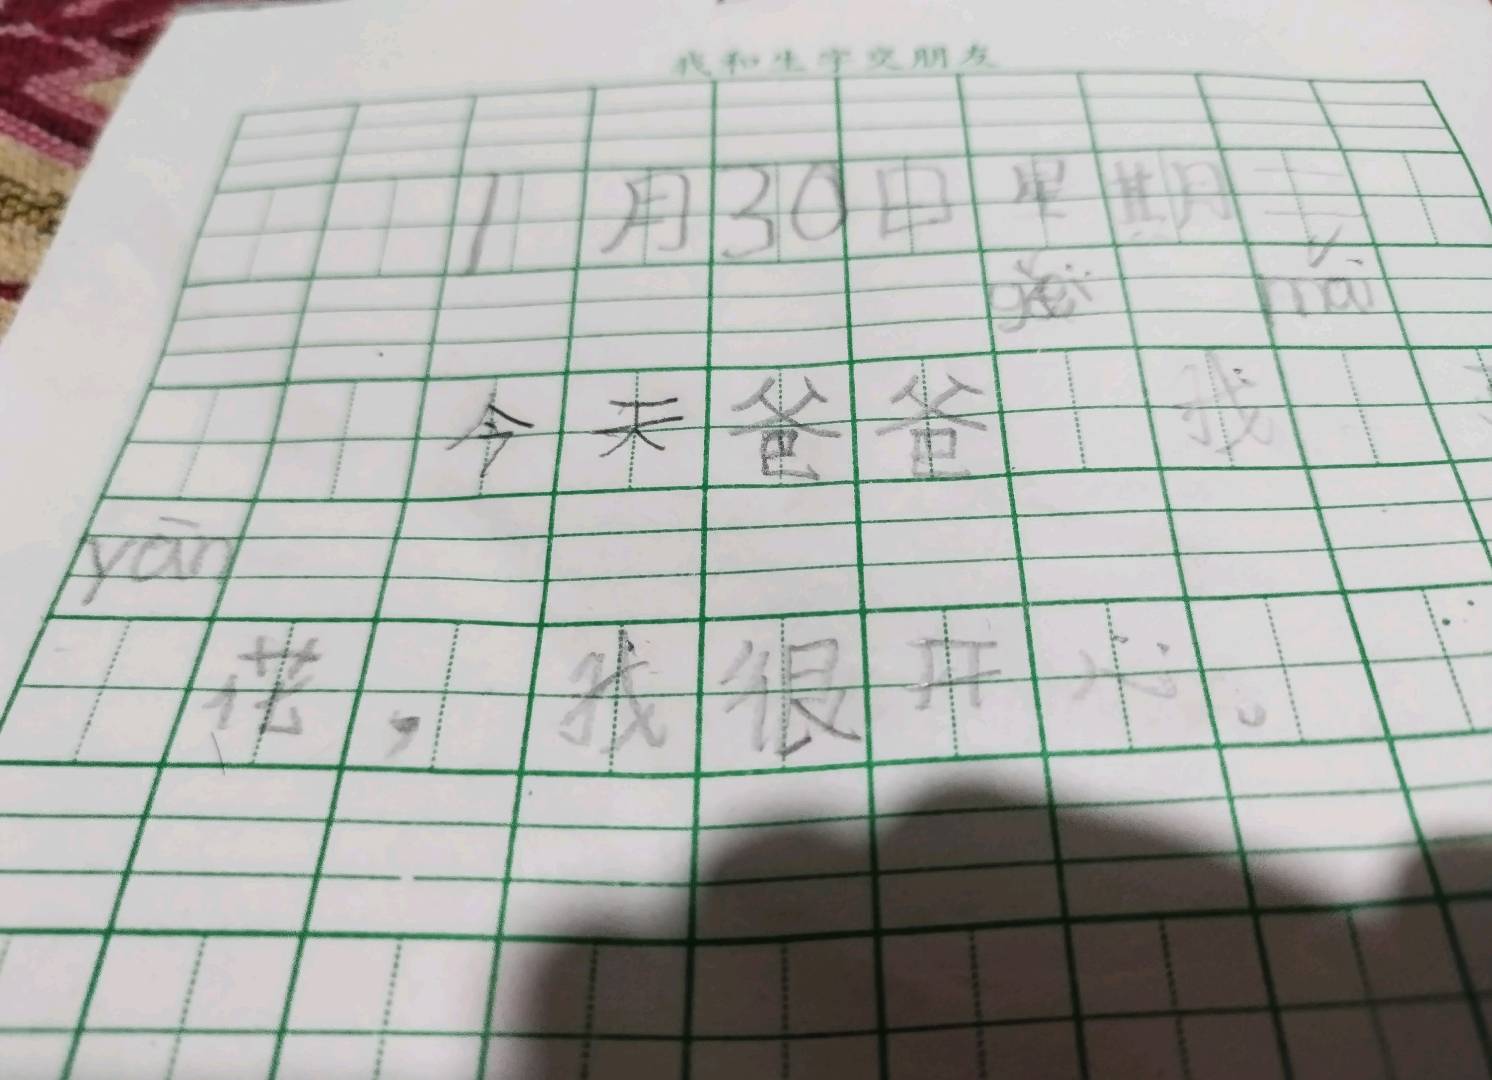 我和生字交朋友
1月30日星期三
gěi mǎi
今天爸爸 我
yān
花，我很开心。